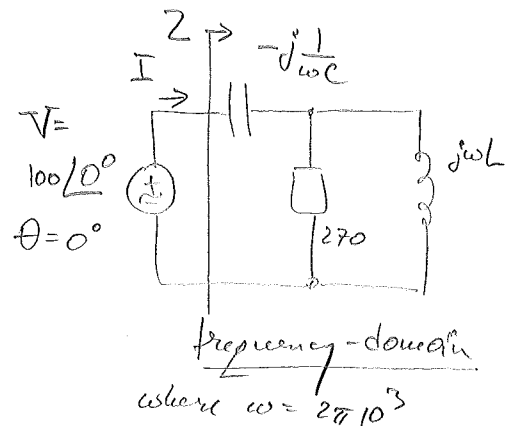 Z
-j 1/ωC
I
V=
100∠0°
θ=0°
jωL
270
frequency-domain
where ω = 2π10³